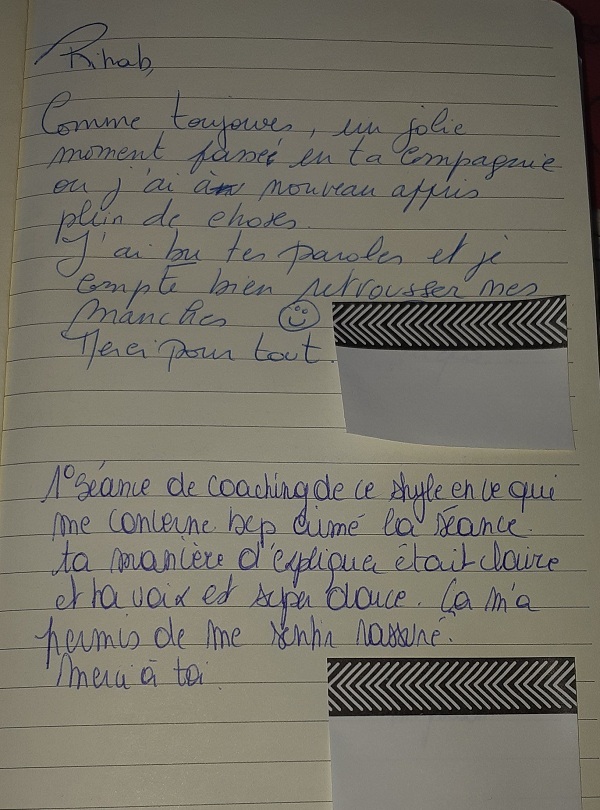 Rihab,
Comme toujours, un jolie
moment passé en ta compagnie
ou j'ai à nouveau appris
plein de choses.
J'ai bu tes paroles et je
compte bien retrousser mes
manches
Merci pour tout.
1° séance de coaching de ce style en ce qui
me concerne. bcp aimé la séance.
ta manière d'expliquer était claire
et ta voix est super douce. Ça m'a
permis de me sentir rassuré.
Merci à toi